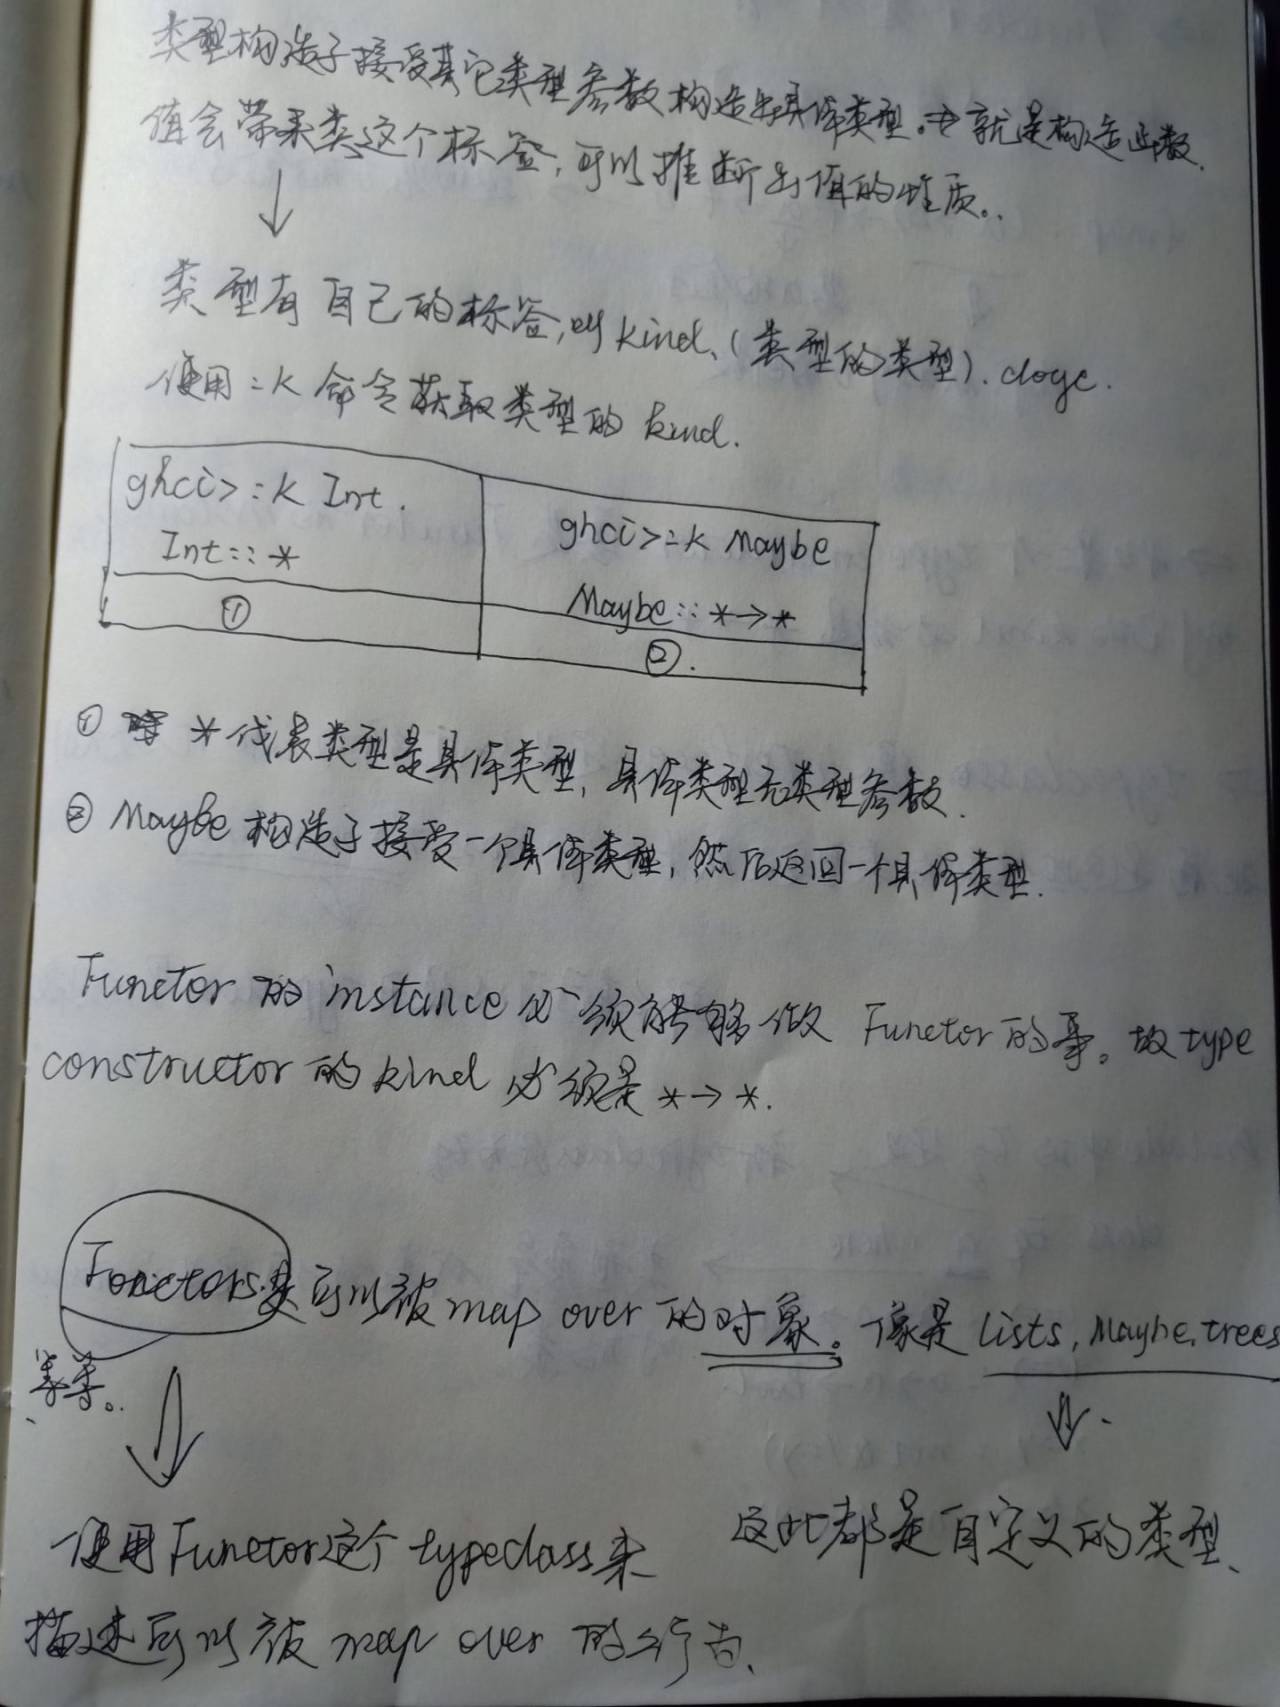 类型构造子接受其它类型参数构造出具体类型。→ 就是构造函数.
值会带来类这个标签,可以推断出值的性质。.
↓
类型有自己的标签,叫kind、(类型的类型). doge.
使用 :k 命令获取类型的 kind.
ghci> :k Int.
Int :: *
①
ghci> :k Maybe
Maybe :: * → *
②.
① * 代表类型是具体类型, 具体类型无类型参数.
② Maybe 构造子接受一个具体类型, 然后返回一个具体类型.
Functor 的 instance 必须能够做 Functor 的事。故type
constructor 的 kind 必须是 * → *.
Functors是可以被 map over 的对象。像是 Lists, Maybe, trees
等等。.
使用Functor这个 typeclass 来
描述可以被 map over 的行为、
这些都是自定义的类型、